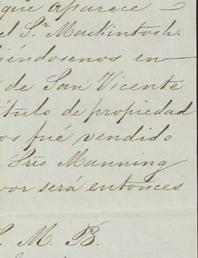 que aparece
el Sr. MacKintosh.
iéndosenos en
de San Vicente
ítulo de propiedad
os fué vendido
Sres Manning
vor será entonces
S. M. B.